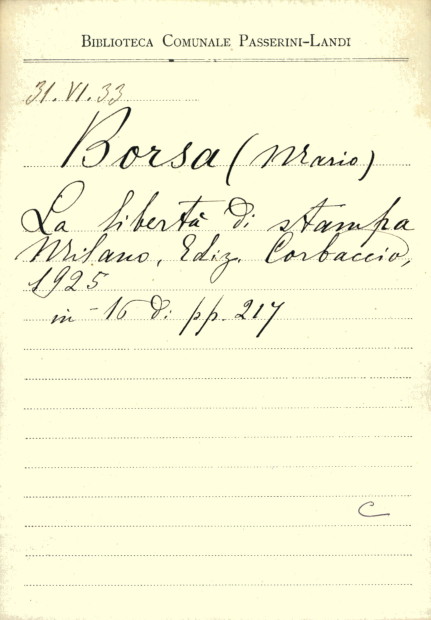 BIBLIOTECA COMUNALE PASSERINI-LANDI
31.VI.33
Borsa (Mario)
La libertà di stampa
Milano, Ediz. Corbaccio,
1925
in-16 di pp. 217
C